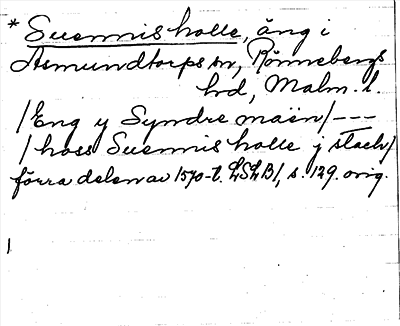 * Suennis holle, äng i
Asmundtorps sn, Rönnebergs
hd, Malm. l.
/Eng y Syndre maën/ ---
/hoss Suennis holle j stach/
förra delen av 1570-t. LSLB1, s. 129. orig.